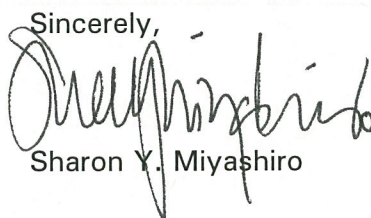 Sincerely,
Sharon Y. Miyashiro